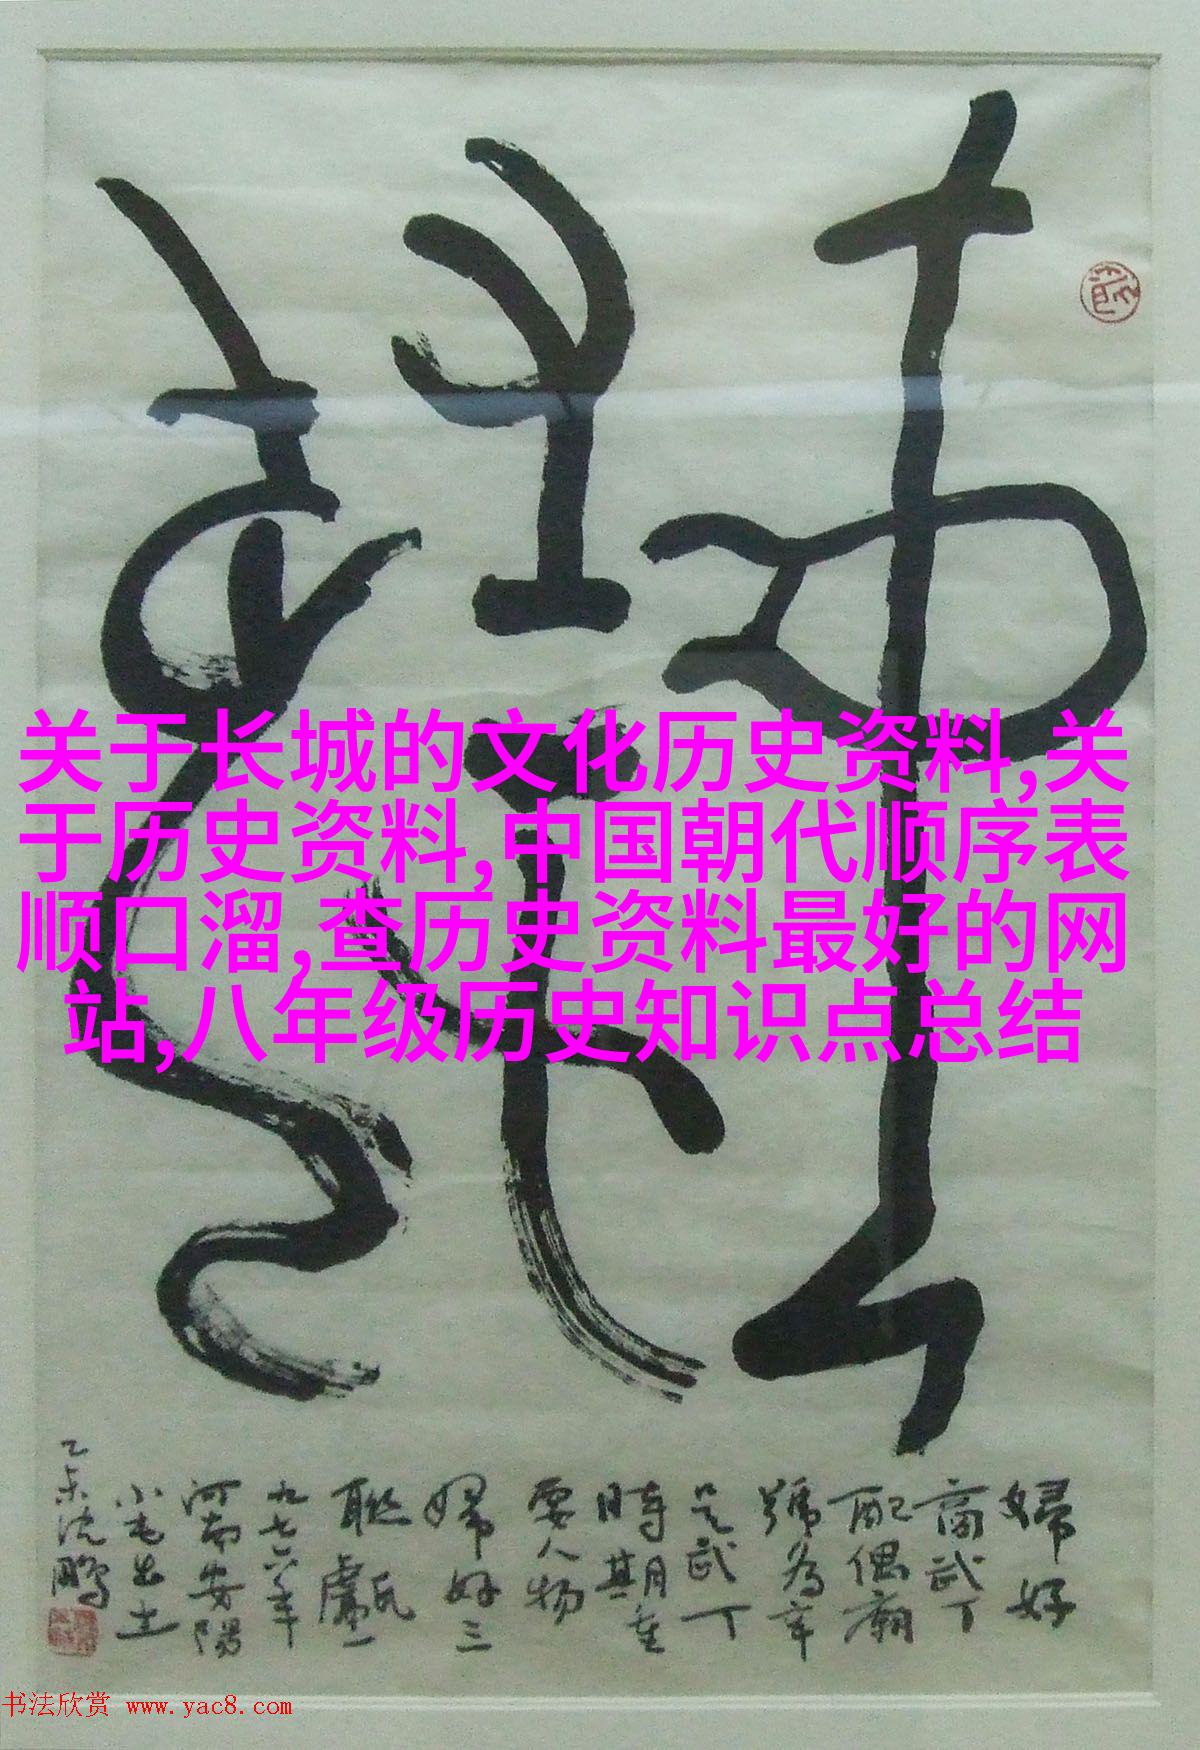 关于长城的文化历史资料,关
于历史资料,中国朝代顺序表
顺口溜,查历史资料最好的网
站,八年级历史知识点总结
婦好
商武丁
配偶廟
號为辛
是武丁
時期重
要人物
婦好三
聨甗氏
九七六年
河南安陽
小屯出土
乙未沈鹏
书法欣赏 www.yac8.com